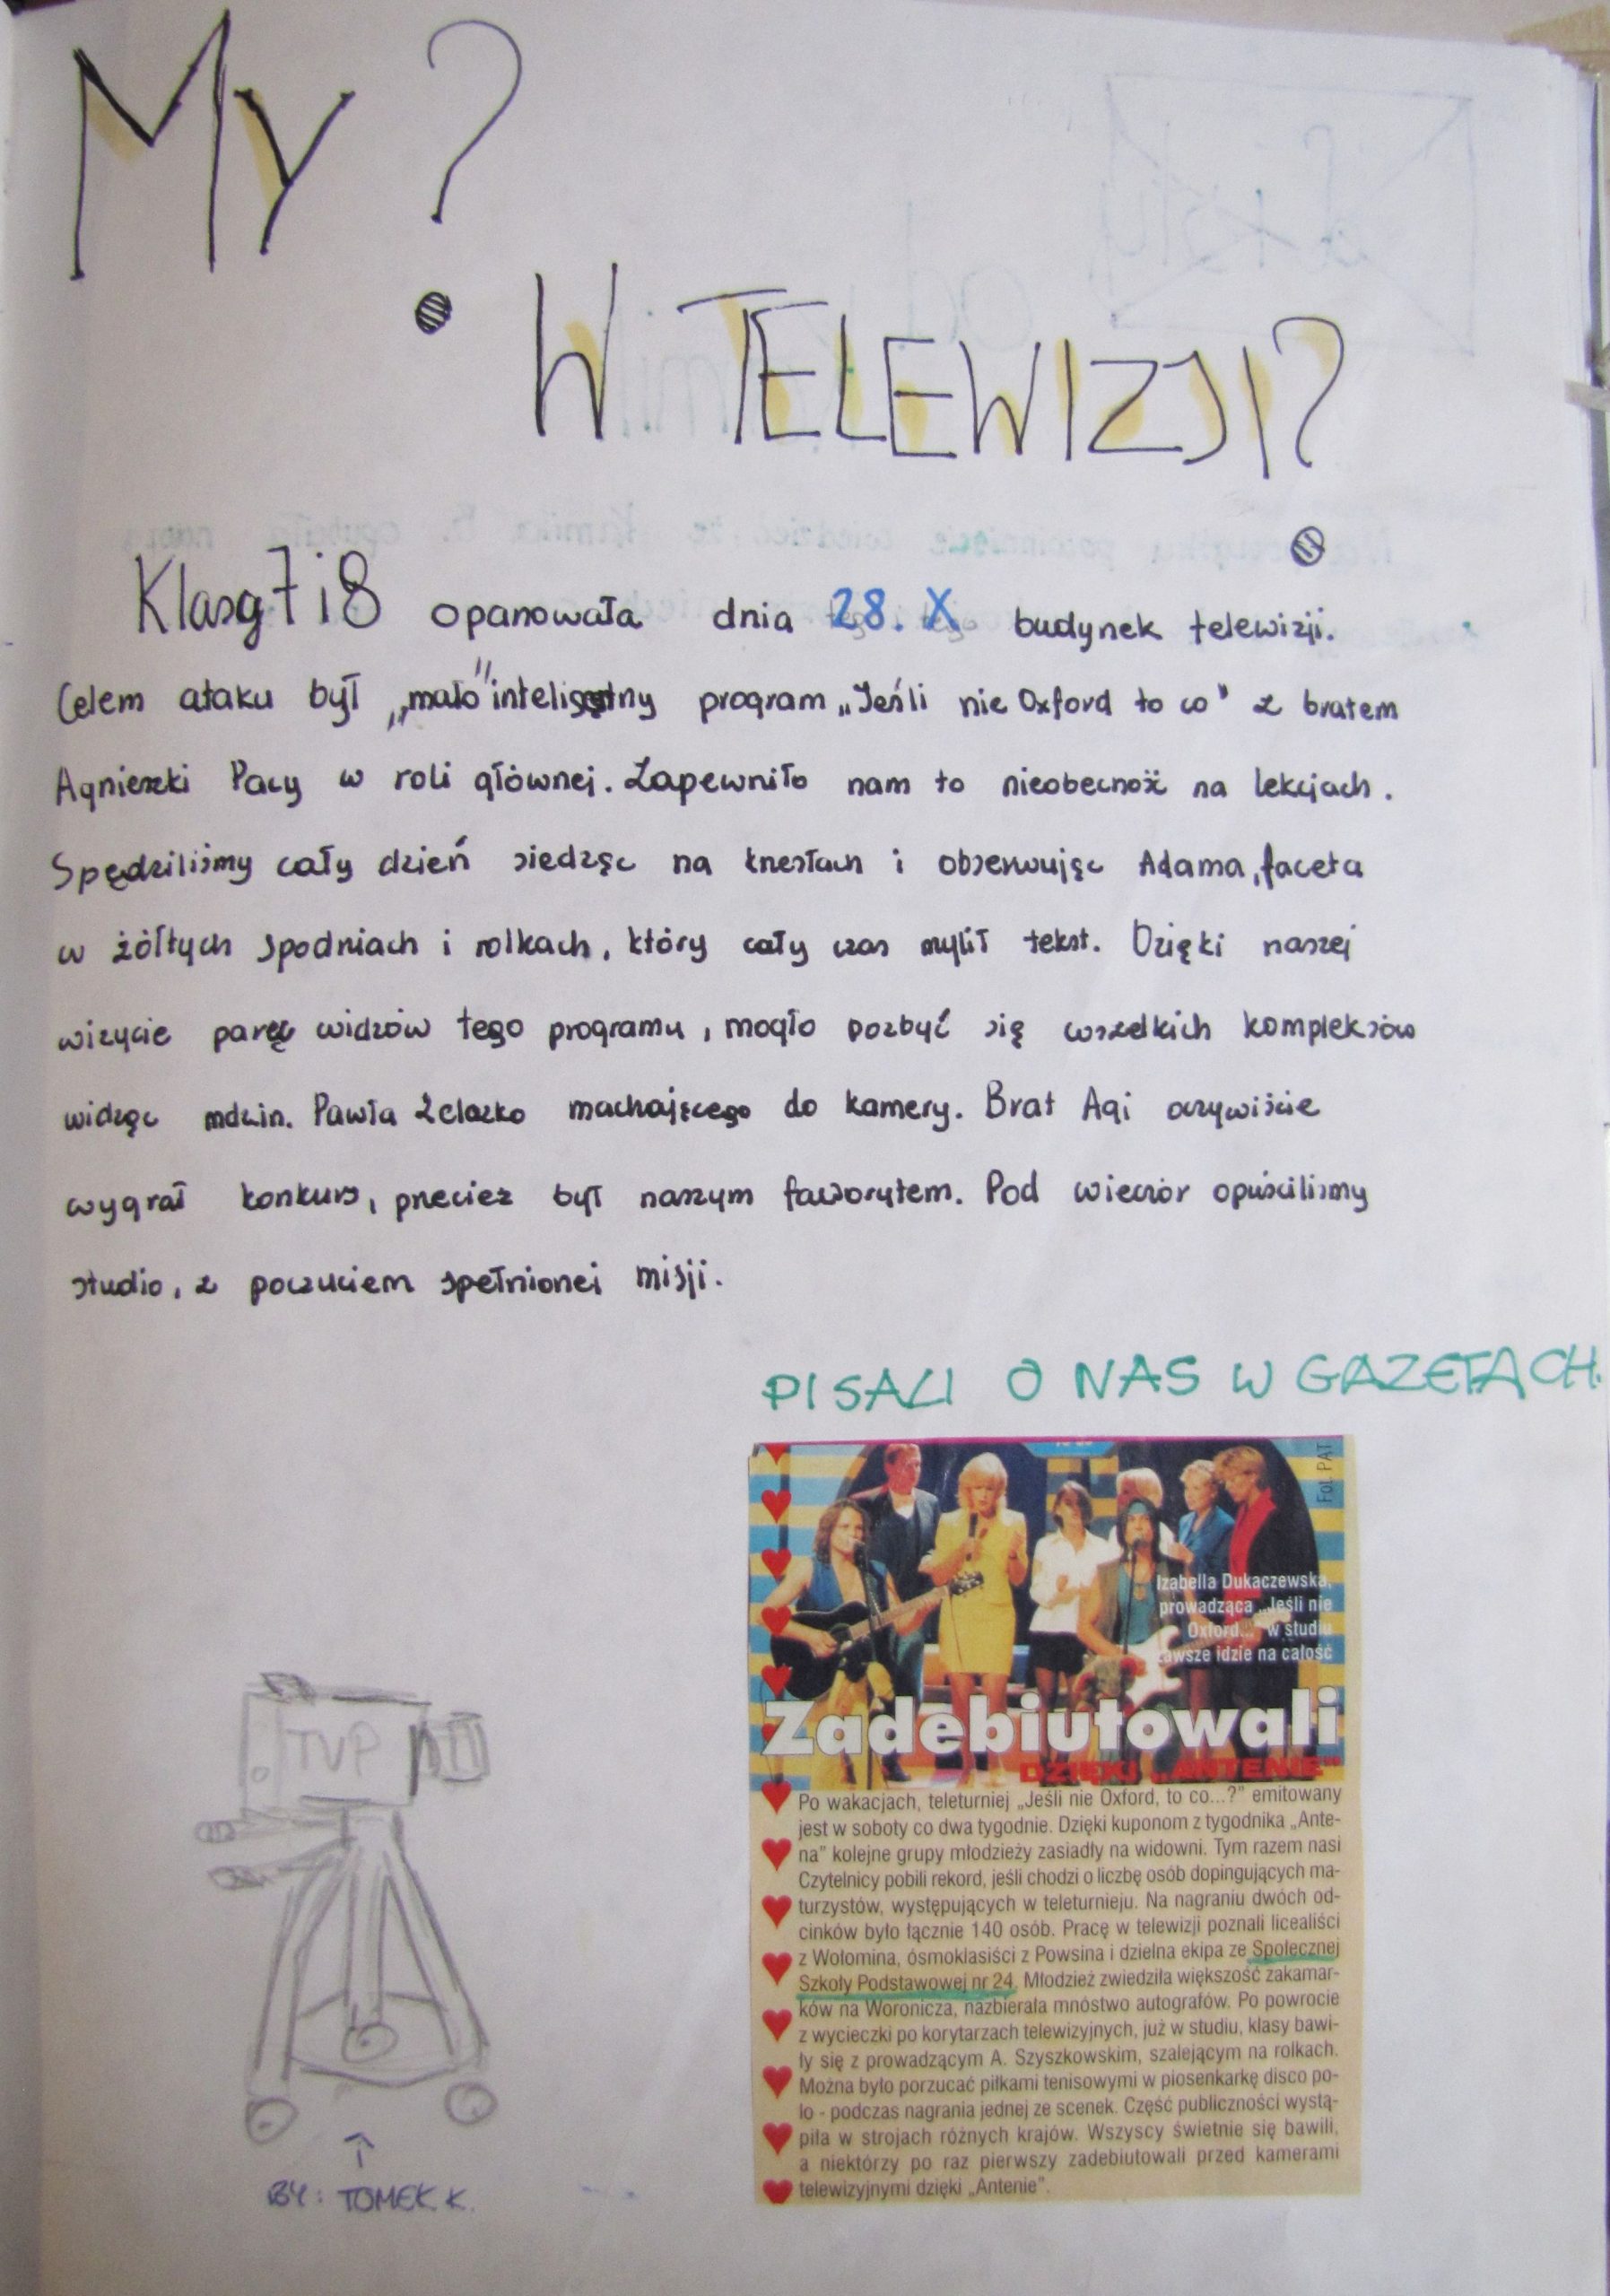 MY?
W TELEWIZJI?
Klasa 7 i 8 opanowała dnia 28. X budynek telewizji.
Celem ataku był „mało" inteligentny program „Jeśli nie Oxford to co" z bratem
Agnieszki Pacy w roli głównej. Zapewniło nam to nieobecność na lekcjach.
Spędziliśmy cały dzień siedząc na krzesłach i obserwując Adama, faceta
w żółtych spodniach i rolkach, który cały czas mylił tekst. Dzięki naszej
wizycie parę widzów tego programu, mogło pozbyć się wszelkich kompleksów
widząc mdzin. Pawła Żelazko machającego do kamery. Brat Agi oczywiście
wygrał konkurs, przecież był naszym faworytem. Pod wieczór opuściliśmy
studio, z poczuciem spełnionej misji.
PISALI O NAS W GAZETACH.
Fot. PAT
Izabella Dukaczewska,
prowadząca „Jeśli nie
Oxford..." w studiu
zawsze idzie na całość
Zadebiutowali
DZIĘKI „ANTENIE"
Po wakacjach, teleturniej „Jeśli nie Oxford, to co...?" emitowany
jest w soboty co dwa tygodnie. Dzięki kuponom z tygodnika „Ante-
na" kolejne grupy młodzieży zasiadły na widowni. Tym razem nasi
Czytelnicy pobili rekord, jeśli chodzi o liczbę osób dopingujących ma-
turzystów, występujących w teleturnieju. Na nagraniu dwóch od-
cinków było łącznie 140 osób. Pracę w telewizji poznali licealiści
z Wołomina, ósmoklasiści z Powsina i dzielna ekipa ze Społecznej
Szkoły Podstawowej nr 24. Młodzież zwiedziła większość zakamar-
ków na Woronicza, nazbierała mnóstwo autografów. Po powrocie
z wycieczki po korytarzach telewizyjnych, już w studiu, klasy bawi-
ły się z prowadzącym A. Szyszkowskim, szalejącym na rolkach.
Można było porzucać piłkami tenisowymi w piosenkarkę disco po-
lo - podczas nagrania jednej ze scenek. Część publiczności wystą-
piła w strojach różnych krajów. Wszyscy świetnie się bawili,
a niektórzy po raz pierwszy zadebiutowali przed kamerami
telewizyjnymi dzięki „Antenie".
TVP
BY: TOMEK K.